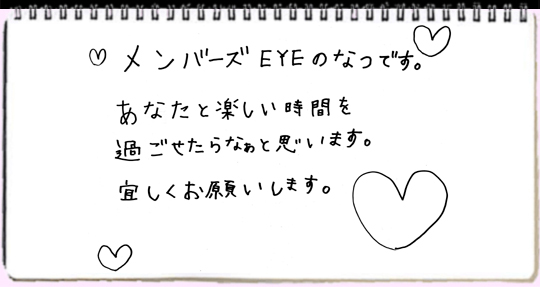 ♡ メンバーズEYEのなつです。
あなたと楽しい時間を
過ごせたらなぁと思います。
宜しくお願いします。